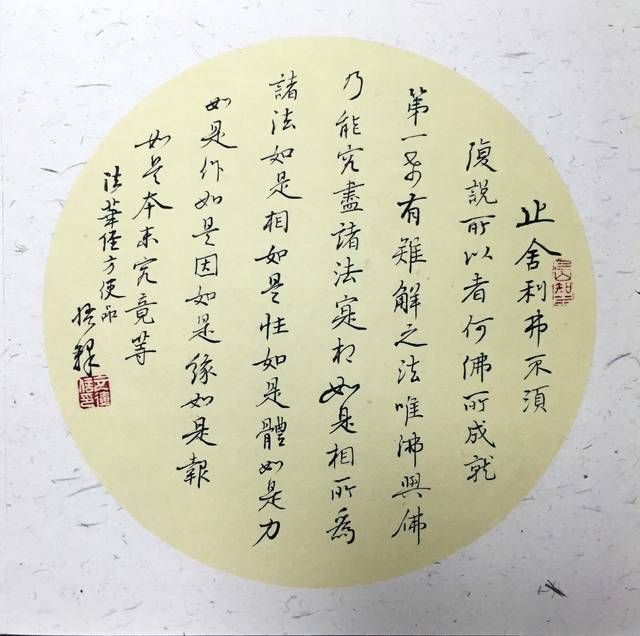 止舍利弗不須
復說所以者何佛所成就
第一希有難解之法唯佛與佛
乃能究盡諸法寔相如是相所為
諸法如是相如是性如是體如是力
如是作如是因如是緣如是報
如是本末究竟等
法華經方便品